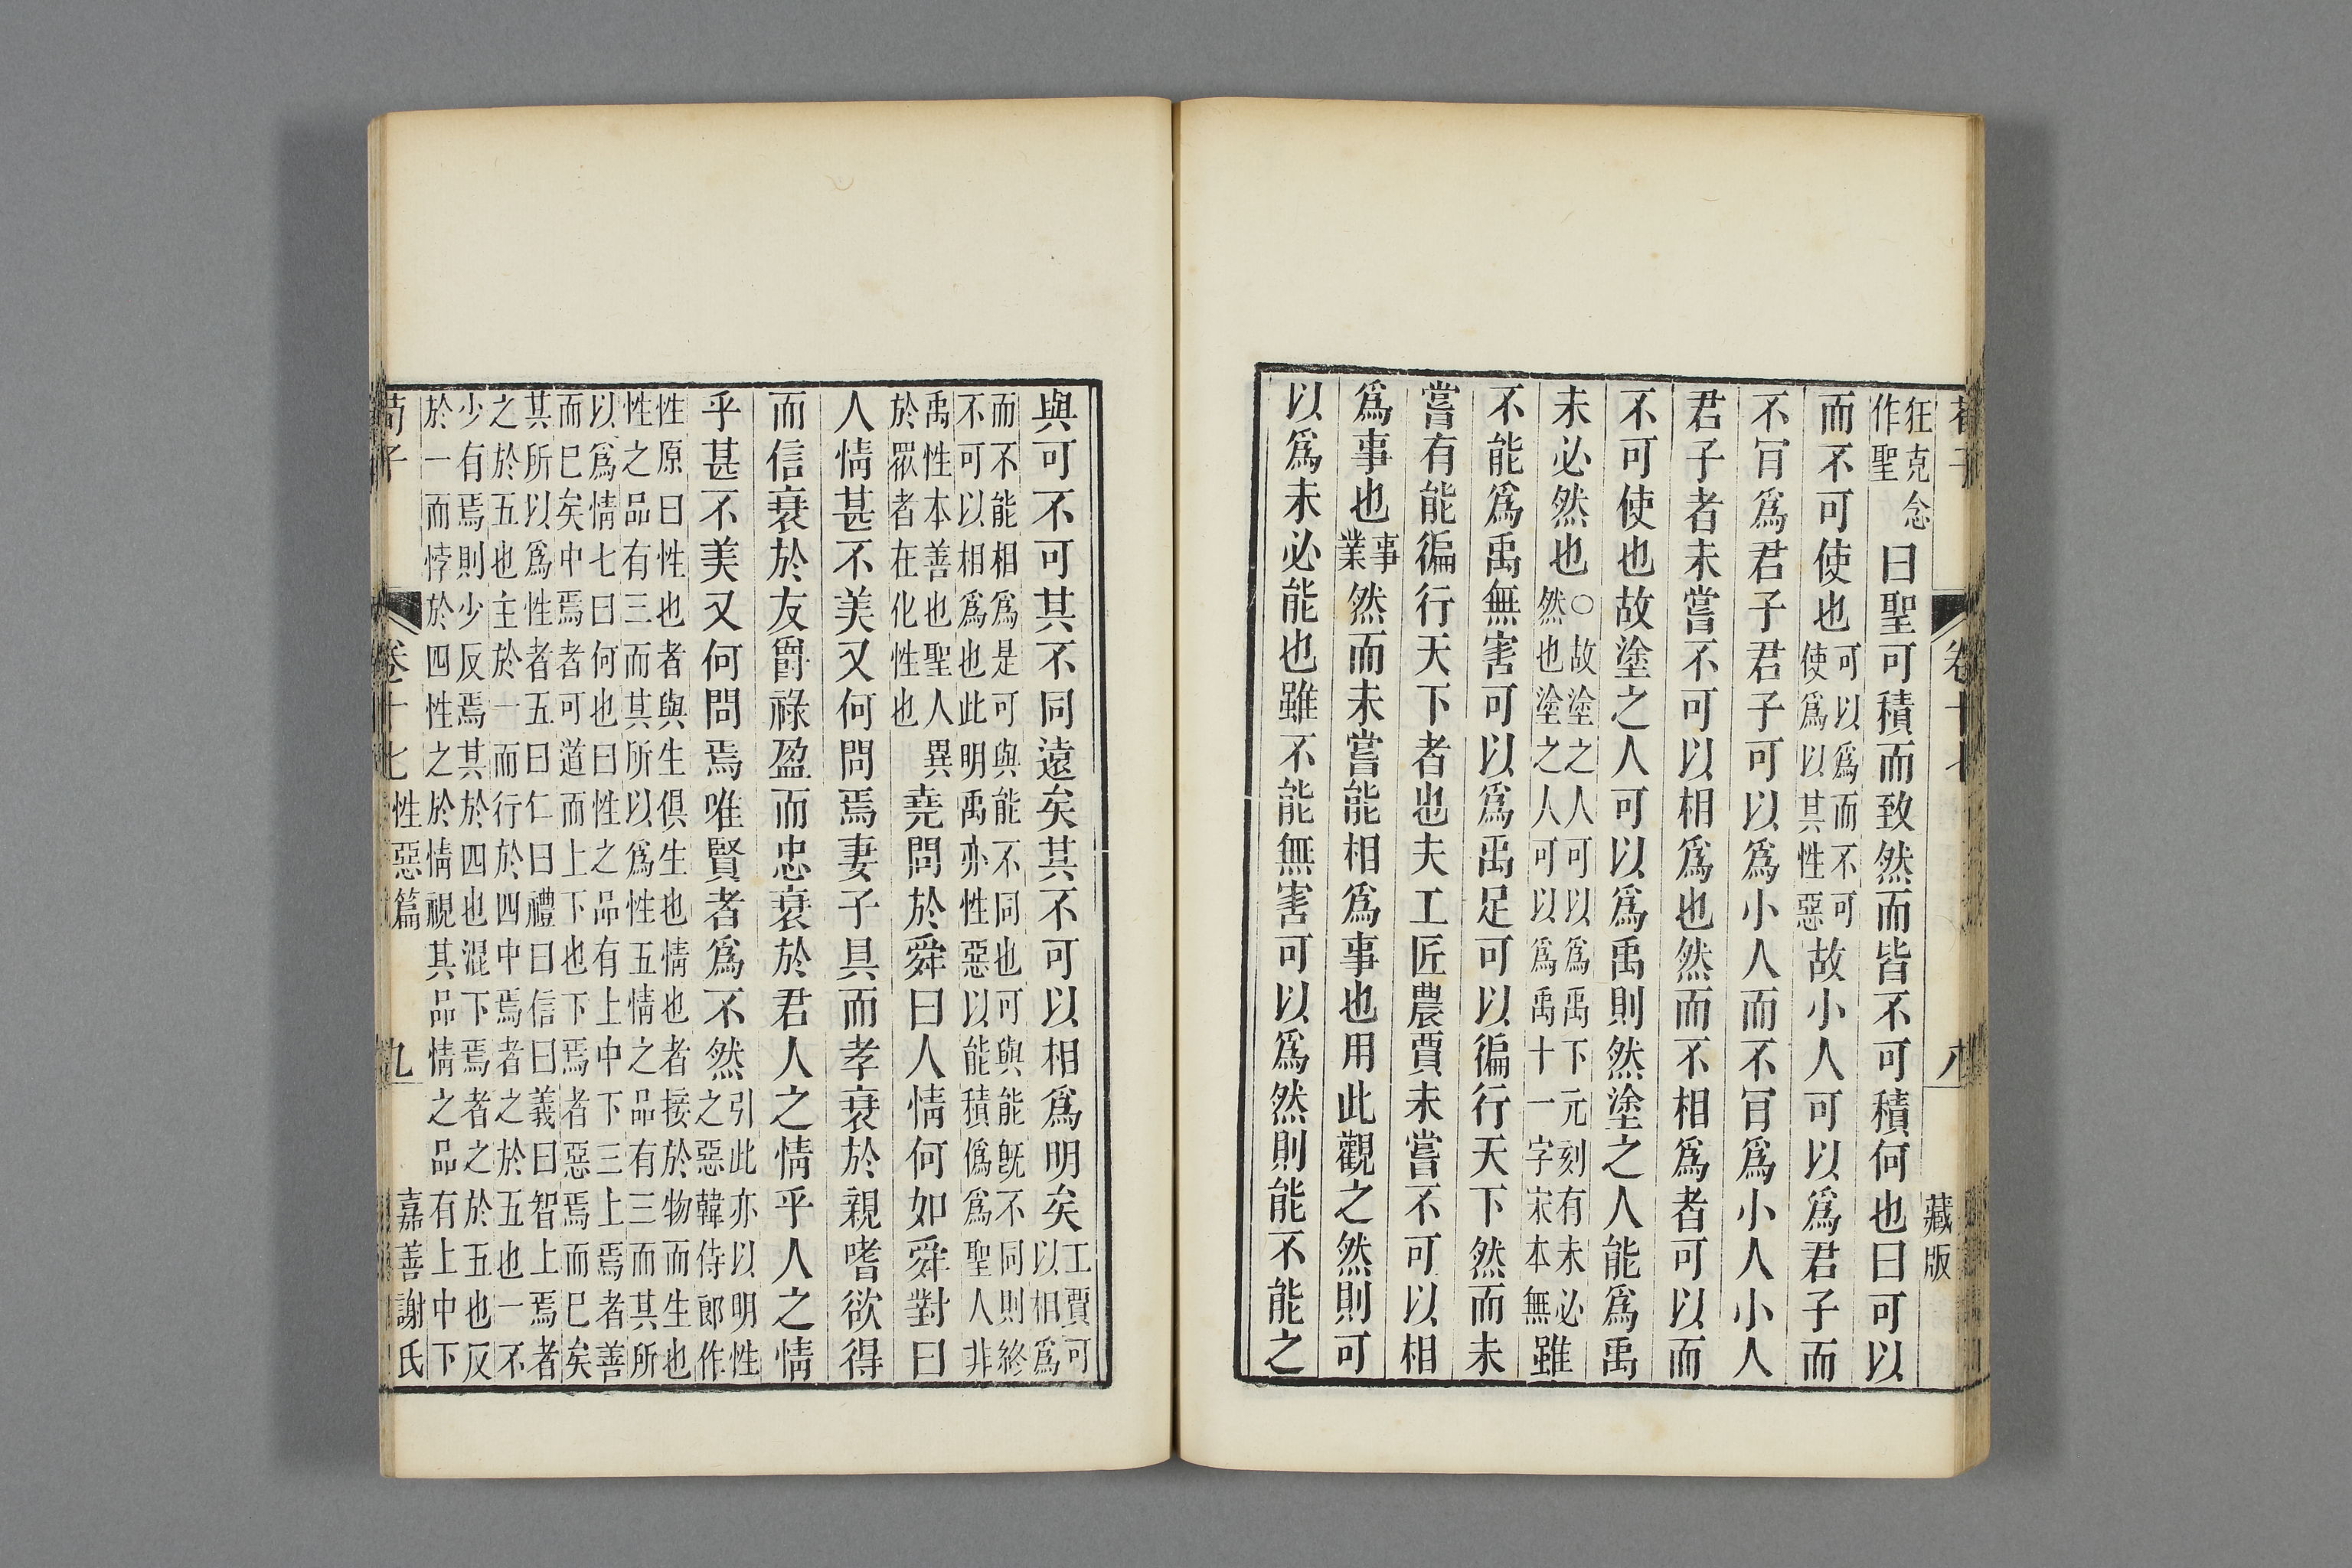 荀子 卷十七 八 藏版
狂克念作聖曰聖可積而致然而皆不可積何也曰可以
而不可使也可以爲而不可使爲以其性惡故小人可以爲君子而
不肎爲君子君子可以爲小人而不肎爲小人小人
君子者未嘗不可以相爲也然而不相爲者可以而
不可使也故塗之人可以爲禹則然塗之人能爲禹
未必然也○故塗之人可以爲禹下元刻有未必然也塗之人可以爲禹十一字宋本無雖
不能爲禹無害可以爲禹足可以徧行天下然而未
嘗有能徧行天下者也夫工匠農賈未嘗不可以相
爲事也事業然而未嘗能相爲事也用此觀之然則可
以爲未必能也雖不能無害可以爲然則能不能之
與可不可其不同遠矣其不可以相爲明矣工賈可以相爲
而不能相爲是可與能不同也可與能旣不同則終不可以相爲也此明禹亦性惡以能積僞爲聖人非
禹性本善也聖人異於眾者在化性也堯問於舜曰人情何如舜對曰
人情甚不美又何問焉妻子具而孝衰於親嗜欲得
而信衰於友爵祿盈而忠衰於君人之情乎人之情
乎甚不美又何問焉唯賢者爲不然引此亦以明性之惡韓侍郎作
性原曰性也者與生俱生也情也者接於物而生也性之品有三而其所以爲性五情之品有三而其所
以爲情七曰何也曰性之品有上中下三上焉者善而巳矣中焉者可道而上下也下焉者惡焉而巳矣
其所以爲性者五曰仁曰禮曰信曰義曰智上焉者之於五也主於一而行於四中焉者之於五也一不
少有焉則少反焉其於四也混下焉者之於五也反於一而悖於四性之於情視其品情之品有上中下
荀子 卷十七 性惡篇 九 嘉善謝氏